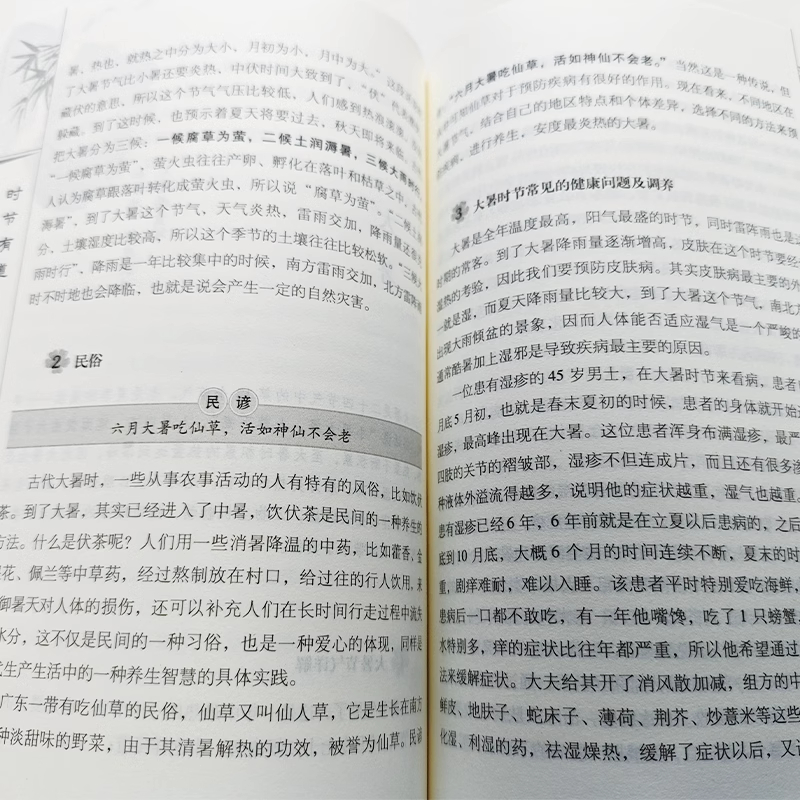 时
节
有
道
暑、热也，就热之中分为大小，月初为小，月中为大。"
了大暑节气比小暑还要炎热，中伏时间大致到了，"伏"代表
藏伏的意思，所以这个节气气压比较低，人们感到热浪滚滚
躲藏。到了这时候，也预示着夏天将要过去，秋天即将来临。
把大暑分为三候：一候腐草为萤，二候土润溽暑，三候大雨时行
"一候腐草为萤"，萤火虫往往产卵、孵化在落叶和枯草之中，古
人认为腐草跟落叶转化成萤火虫，所以说"腐草为萤"。"二候土
溽暑"，到了大暑这个节气，天气炎热，雷雨交加，降雨量还
分，土壤湿度比较高，所以这个季节的土壤往往比较松软。"三候大
雨时行"，降雨是一年比较集中的时候，南方雷雨交加，北方雷雨
时不时地也会降临，也就是说会产生一定的自然灾害。
2 民俗
民谚
六月大暑吃仙草，活如神仙不会老
古代大暑时，一些从事农事活动的人有特有的风俗，比如饮伏
茶。到了大暑，其实已经进入了中暑，饮伏茶是民间的一种养生的
方法。什么是伏茶呢？人们用一些消暑降温的中药，比如藿香、金
银花、佩兰等中草药，经过熬制放在村口，给过往的行人饮用，来
御暑天对人体的损伤，还可以补充人们在长时间行走过程中流失
水分，这不仅是民间的一种习俗，也是一种爱心的体现，同样是
式生产生活中的一种养生智慧的具体实践。
广东一带有吃仙草的民俗，仙草又叫仙人草，它是生长在南方
种淡甜味的野菜，由于其清暑解热的功效，被誉为仙草。民谚
"六月大暑吃仙草，活如神仙不会老。"当然这是一种传说，但
可知仙草对于预防疾病有很好的作用。现在看来，不同地区在
节气，结合自己的地区特点和个体差异，选择不同的方法来预
疾病，进行养生，安度最炎热的大暑。
3 大暑时节常见的健康问题及调养
大暑是全年温度最高，阳气最盛的时节，同时雷阵雨也是这
时期的常客。到了大暑降雨量逐渐增高，皮肤在这个时节要经
湿热的考验，因此我们要预防皮肤病。其实皮肤病最主要的外
一就是湿，而夏天降雨量比较大，到了大暑这个节气，南北方
出现大雨倾盆的景象，因而人体能否适应湿气是一个严峻的
通常酷暑加上湿邪是导致疾病最主要的原因。
一位患有湿疹的 45 岁男士，在大暑时节来看病，患者
月底 5 月初，也就是春末夏初的时候，患者的身体就开始
湿疹，最高峰出现在大暑。这位患者浑身布满湿疹，最严
四肢的关节的褶皱部，湿疹不但连成片，而且还有很多渗
种液体外溢流得越多，说明他的症状越重，湿气也越重。
患有湿疹已经 6 年，6 年前就是在立夏以后患病的，之后
底到 10 月底，大概 6 个月的时间连续不断，夏末的时
重，剧痒难耐，难以入睡。该患者平时特别爱吃海鲜，
患病后一口都不敢吃，有一年他嘴馋，吃了 1 只螃蟹，
水特别多，痒的症状比往年都严重，所以他希望通过
法来缓解症状。大夫给其开了消风散加减，组方的中
鲜皮、地肤子、蛇床子、薄荷、荆芥、炒薏米等这些
化湿、利湿的药，祛湿燥热，缓解了症状以后，又